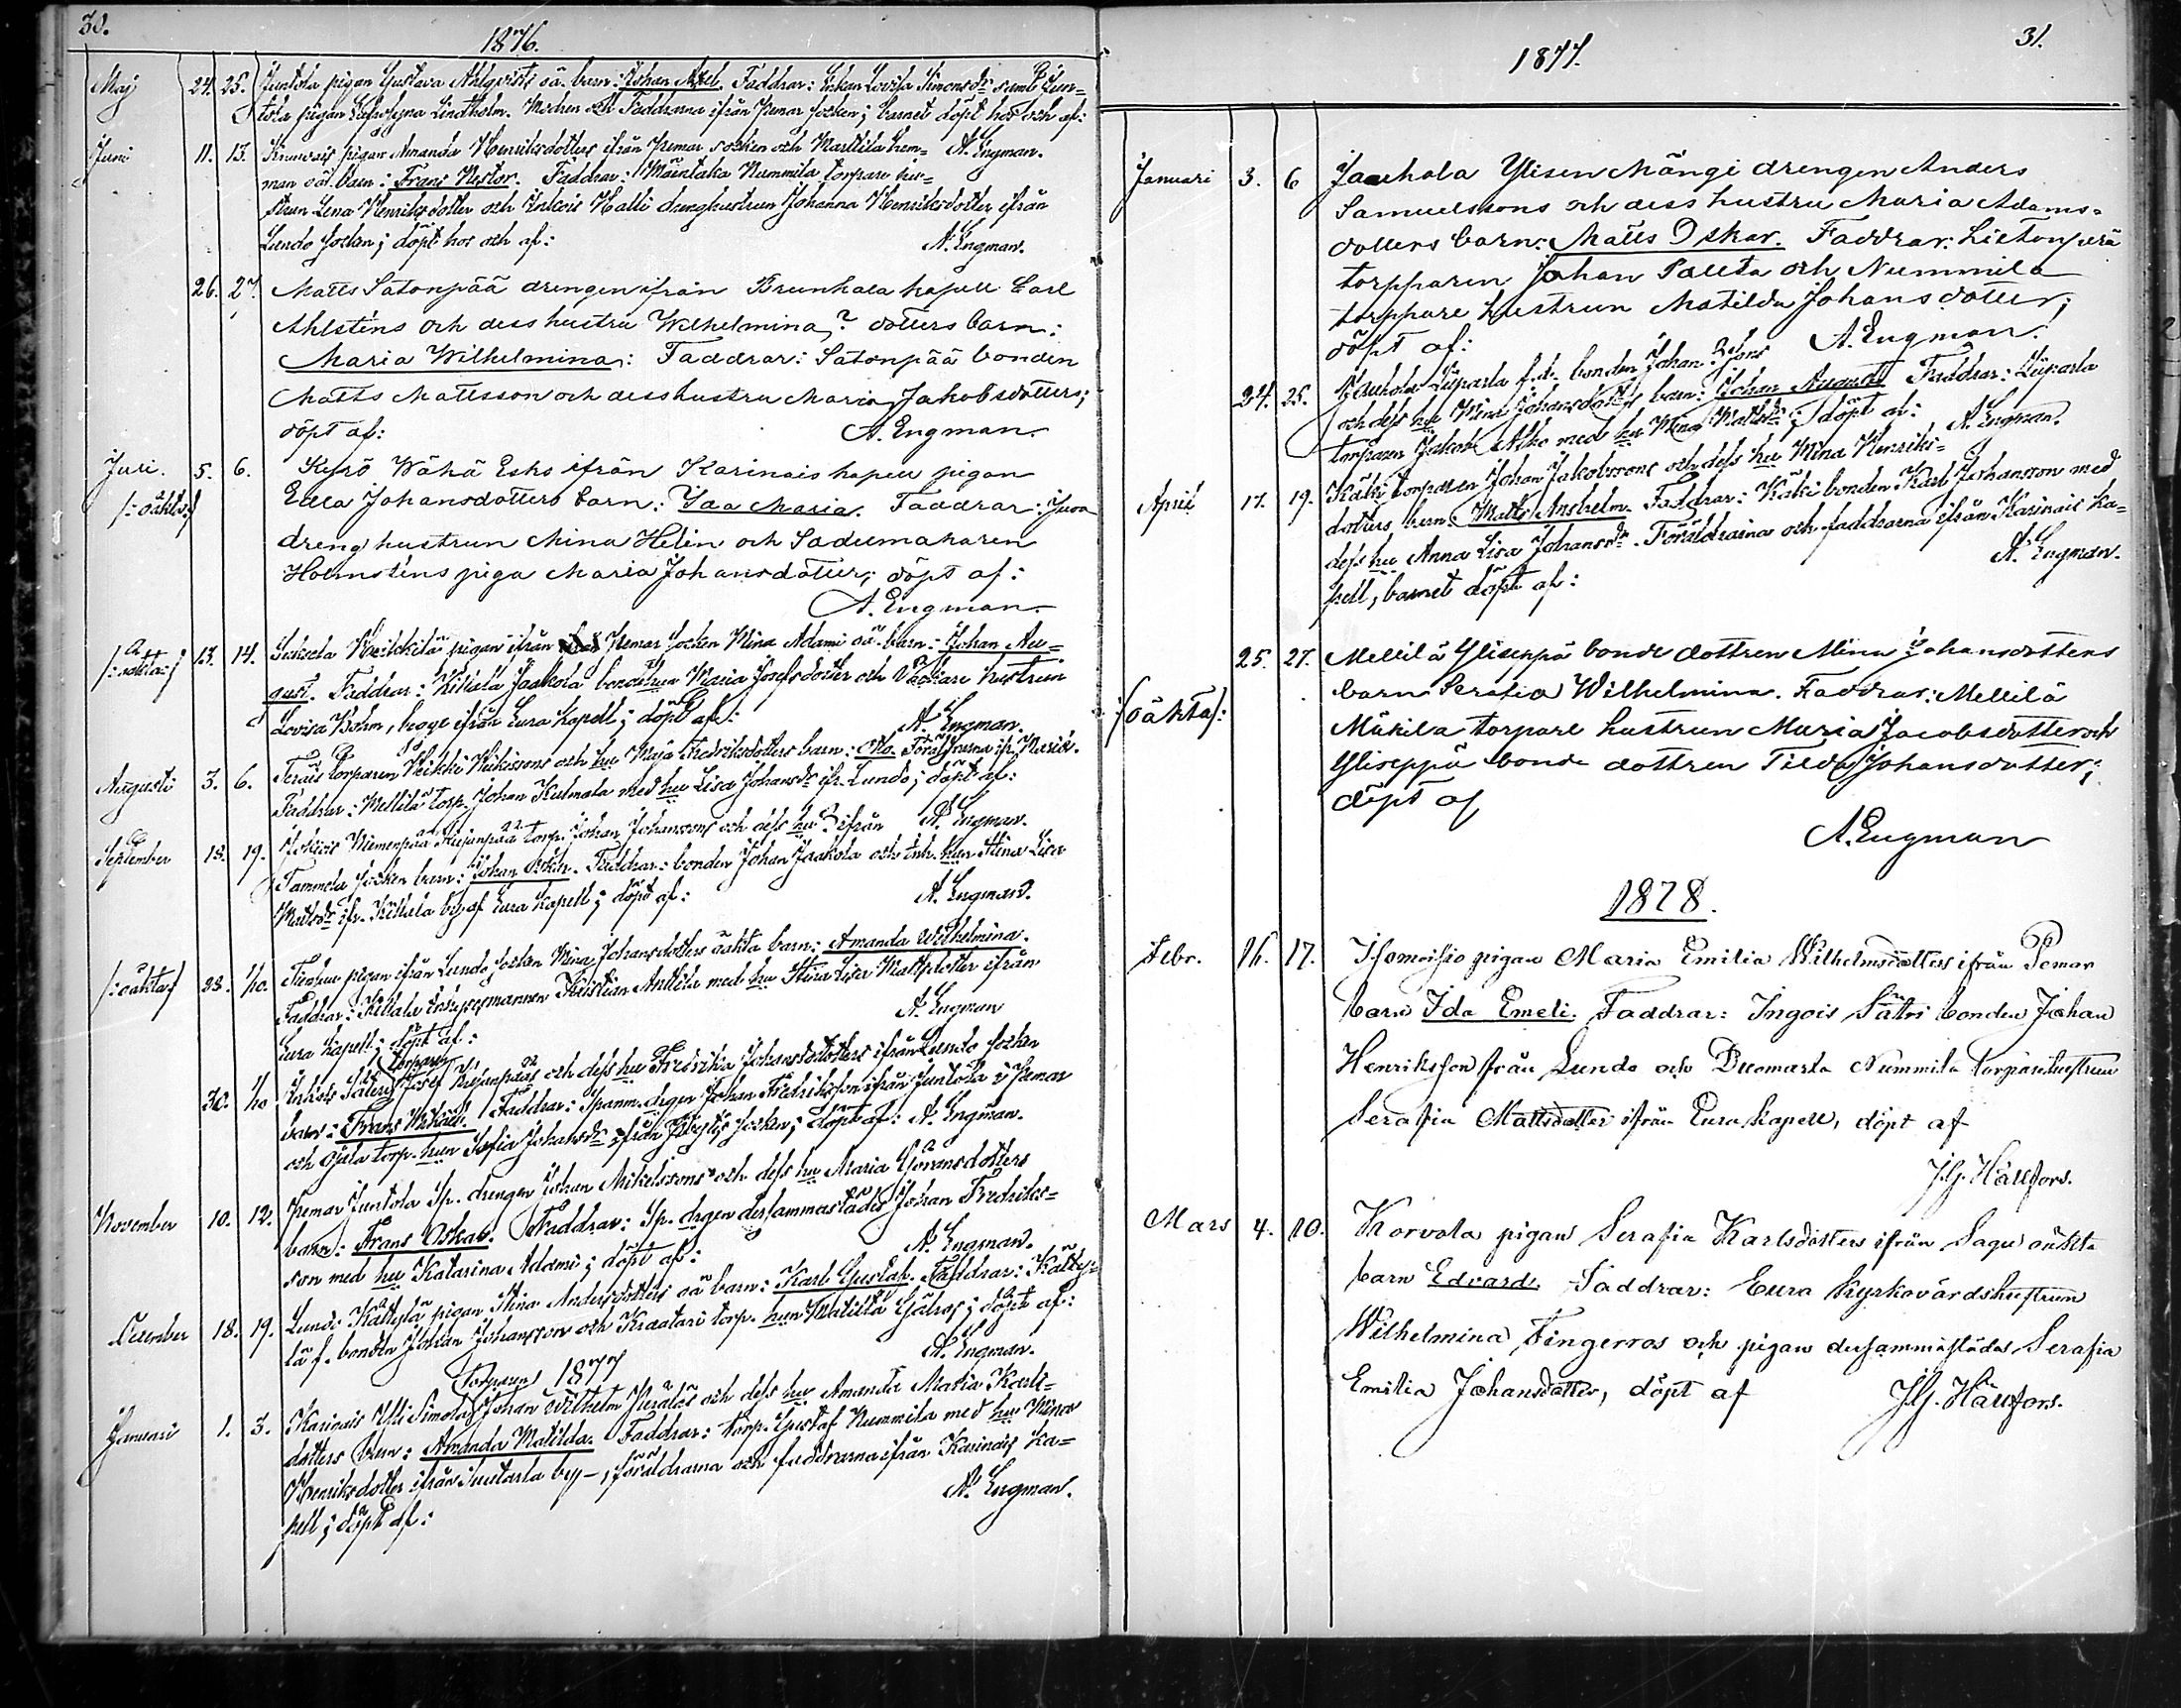 30.
1876.
Maj 24. 25. Juntola pigan Gustava Ahlqvists oä. barn: Johan Axel. Faddrar: Enkan Lovisa Simonsdr samt Jun=
tola pigan Lindholm. Modren och Faddrarna ifrån Pemar socken; barnet döpt hos och af:
Juni 11. 13. pigan Amanda Henriksdotters ifrån Pemar socken och Marttila hem= A. Engman.
man oä. barn: Frans Nestor. Faddrar: Mäintaka Nummila torpare hu=
strun Lena Henriksdotter och Inkois Halli drenghustrun Johanna Henriksdotter ifrån
Lundo socken; döpt hos och af: A. Engman.
26. 27. Matts Satonpää drengen ifrån Brunkala kapell Carl
Ahlsténs och dess hustru Wilhelmina ? dotters barn:
Maria Wilhelmina: Faddrar: Satonpää bonden
Matts Mattsson och dess hustru Maria Jakobsdotters;
döpt af: A. Engman.
Juri. 5. 6. Kyrö Wähä Esko ifrån Karinais kapell pigan
/: oäkta :/ Edla Johansdotters barn: Idaa Maria. Faddrar: Juva
dreng hustrun Mina Helin och Sadelmakaren
Holmsténs piga Maria Johansdotter; döpt af:
A. Engman.
/: oäkta :/ 13. 14. pigan ifrån Pemar socken Mina Adami oä. barn: Johan Au=
gust. Faddrar: Kittala Jaakola bondehun Maria Josefsdotter och hustrun
Lovisa Bohm, bege ifrån Eura kapell; döpt af: A. Engman.
Augusti 3. 6. torparen Heikki Heikissons och hu Maja Fredriksdotters barn: Otto. Föräldrarna ifr.
Faddrar: Mellilä torp. Johan Kulmala med hu Lisa Johansdr ifr. Lundo; döpt af:
A. Engman.
September 18. 19. Niemenpää torp. Johan Johanssons och dess hu ? ifrån
Tammela socken barn: Johan Oskar. Faddrar: bonden Johan Jaakola och Inh. hun Stina Lisa
Mattsdr ifr. Kittala by af Eura kapell; döpt af: A. Engman.
/: oäkta :/ 28. 1/10. pigan ifrån Lundo socken Mina Johansdotters oäkta barn: Amanda Wilhelmina.
Faddrar: Kittala Kristian Anttila med hu Stina Lisa Mattsdotter ifrån
Eura kapell; döpt af: A. Engman
torparen
30. 1/10 Josef och dess hu Fredrika Johansdotters ifrån Lundo socken
barn: Frans Mikael. Faddrar: Spanm. drgen Johan Fredriksson ifrån Juntola i Pemar
och torp. hun Sofia Johansdr ifrån socken; döpt af: A. Engman.
November 10. 12. Pemar Juntola Sp. drengen Johan Mikelssons och dess hu Maria Göransdotters
barn: Frans Oskar. Faddrar: Sp. drgen dersammastädes Johan Fredriks=
son med hu Katarina Adami; döpt af: A. Engman.
December 18. 19. Lundo Kättylä pigan Stina Andersdotters oä barn: Karl Gustaf. Faddrar: Kätty=
lä f. bonden Johan Johansson och Kraatari torp. hun Matilda; döpt af:
A. Engman.
1877
Torparen
Januari 1. 3. Karinais Yli Simola Johan Wilhelm och dess hu Amanda Maria Karls=
dotters barn: Amanda Matilda. Faddrar: torp. Gustaf Nummila med hu Mina
Henriksdotter ifrån by; föräldrarna och faddrarna ifrån Karinais ka=
pell; döpt af: A. Engman.
31.
1877.
Januari 3. 6 Jaakola Ylisen Mängi drengen Anders
Samuelssons och dess hustru Maria Adams=
dotters barn: Matts Oskar. Faddrar: Lietonperä
torpparen Johan Pallta och Nummila
torppare hustrun Matilda Johansdotter;
döpt af: A. Engman.
24. 25. Liiparla f.d. bonden Johan
och dess hu Mina Johansdotters barn: Johan August. Faddrar: Liiparla
torparen Jakob Alho med hu Mina Mattsdr; döpt af: A. Engman.
April 17. 19. Käki torparen Johan Jakobssons och dess hu Mina Henriks=
dotters barn: Matts Anshelm. Faddrar: Käki bonden Karl Johansson med
dess hu Anna Lisa Johansdr. Föräldrarna och faddrarna ifrån Karinais ka=
pell, barnet döpt af: A. Engman.
25. 27. Mellilä Yliseppä bonde dottren Mina Johansdotters
/oäkta/: barn Serafia Wilhelmina. Faddrar: Mellilä
Mäkilä torpare hustrun Maria Jacobsdotter och
Yliseppä bonde dottren Tilda Johansdotter;
döpt af
A. Engman
1878.
Febr. 16. 17. Isomoisio pigan Maria Emilia Wilhelmsdotters ifrån Pemar
barn Ida Emeli. Faddrar: Ingois Sätri bonden Johan
Henriksson från Lundo och Duomarla Nummila torparehustrun
Serafia Mattsdotter ifrån Eura Kapell, döpt af
J.G. Hällfors.
Mars 4. 10. Korvola pigan Serafia Karlsdotters ifrån Sagu oäkta
barn Edvard. Faddrar: Eura Kyrkovärdshustrun
Wilhelmina Fingerroos och pigan dersammastädes Serafia
Emilia Johansdotter, döpt af J.G. Hällfors.